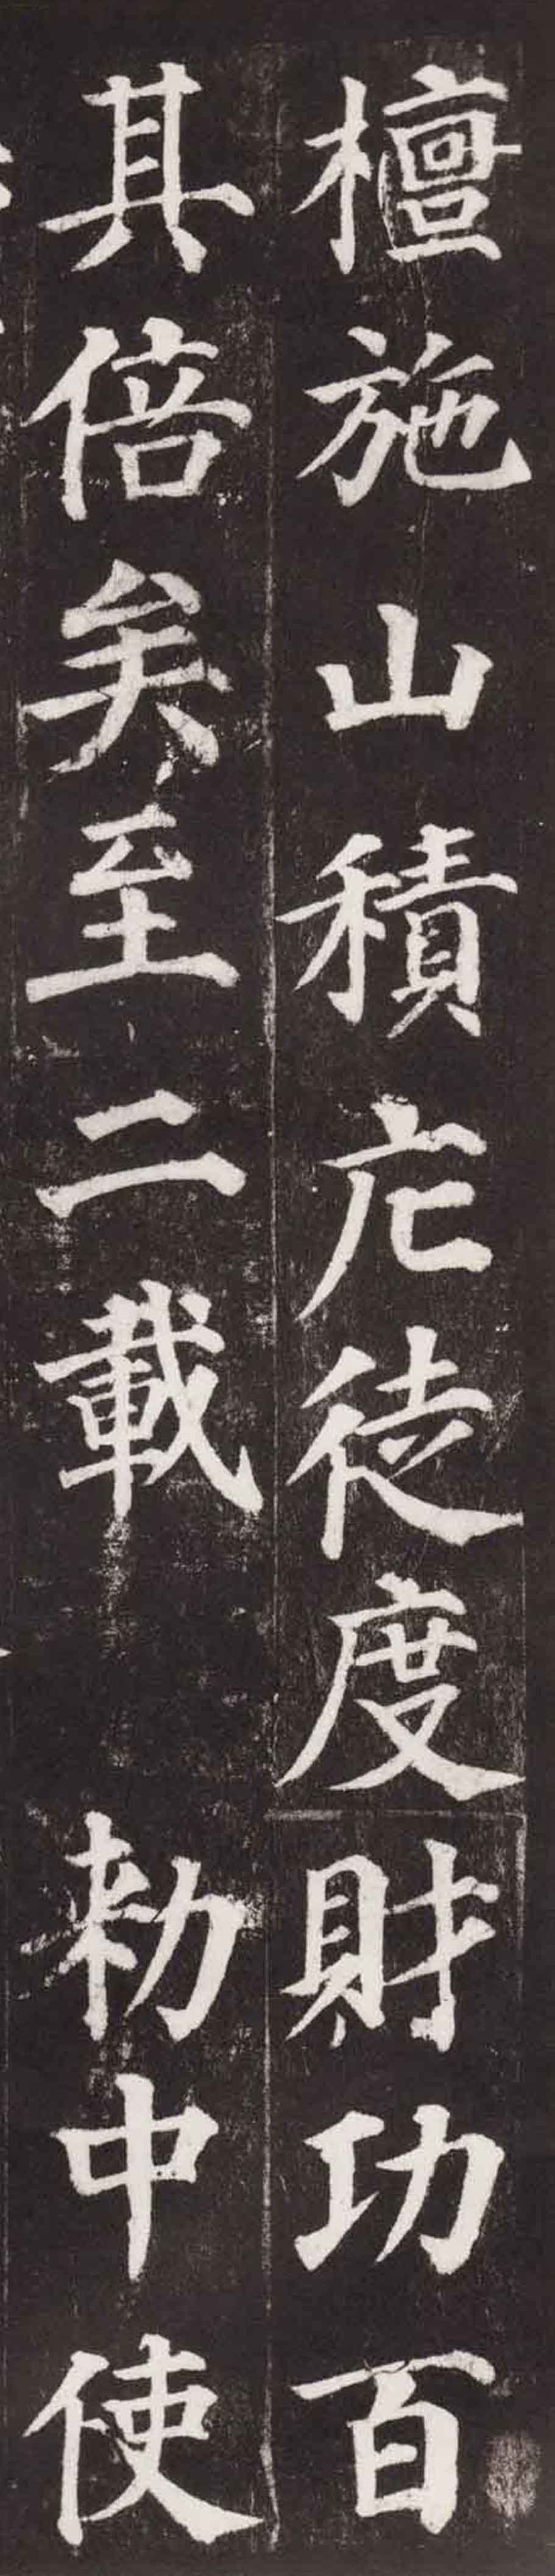 檀施山積庀徒度財功百
其倍矣至二載　勑中使